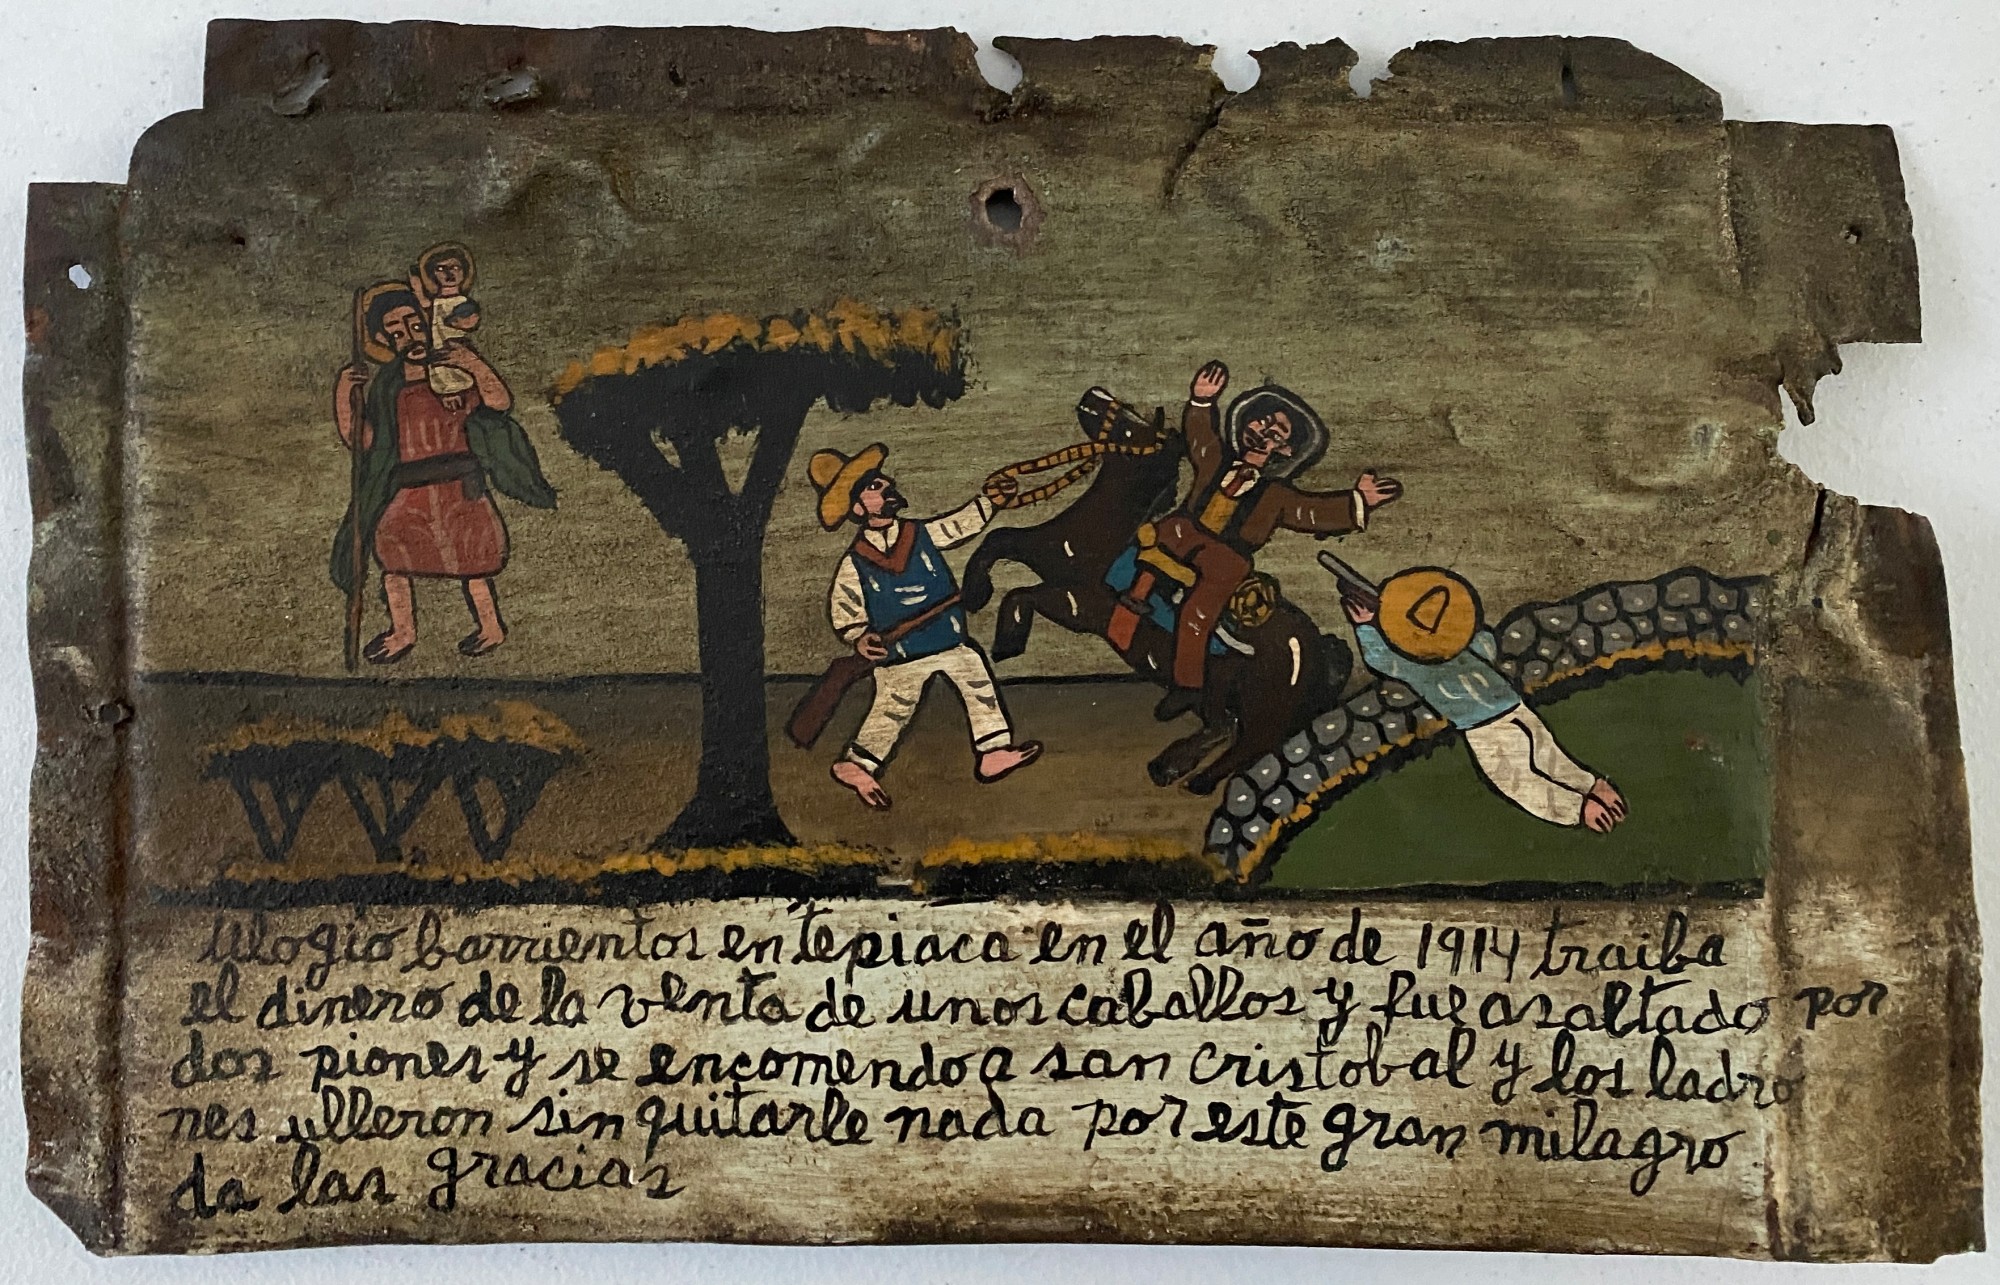 Ulogio barrientos en tepiaca en el año de 1914 traiba
el dinero de la venta de unos caballos y fue asaltado por
dos piones y se encomendo a san cristobal y los ladro
nes ulleron sin quitarle nada por este gran milagro
da las gracias